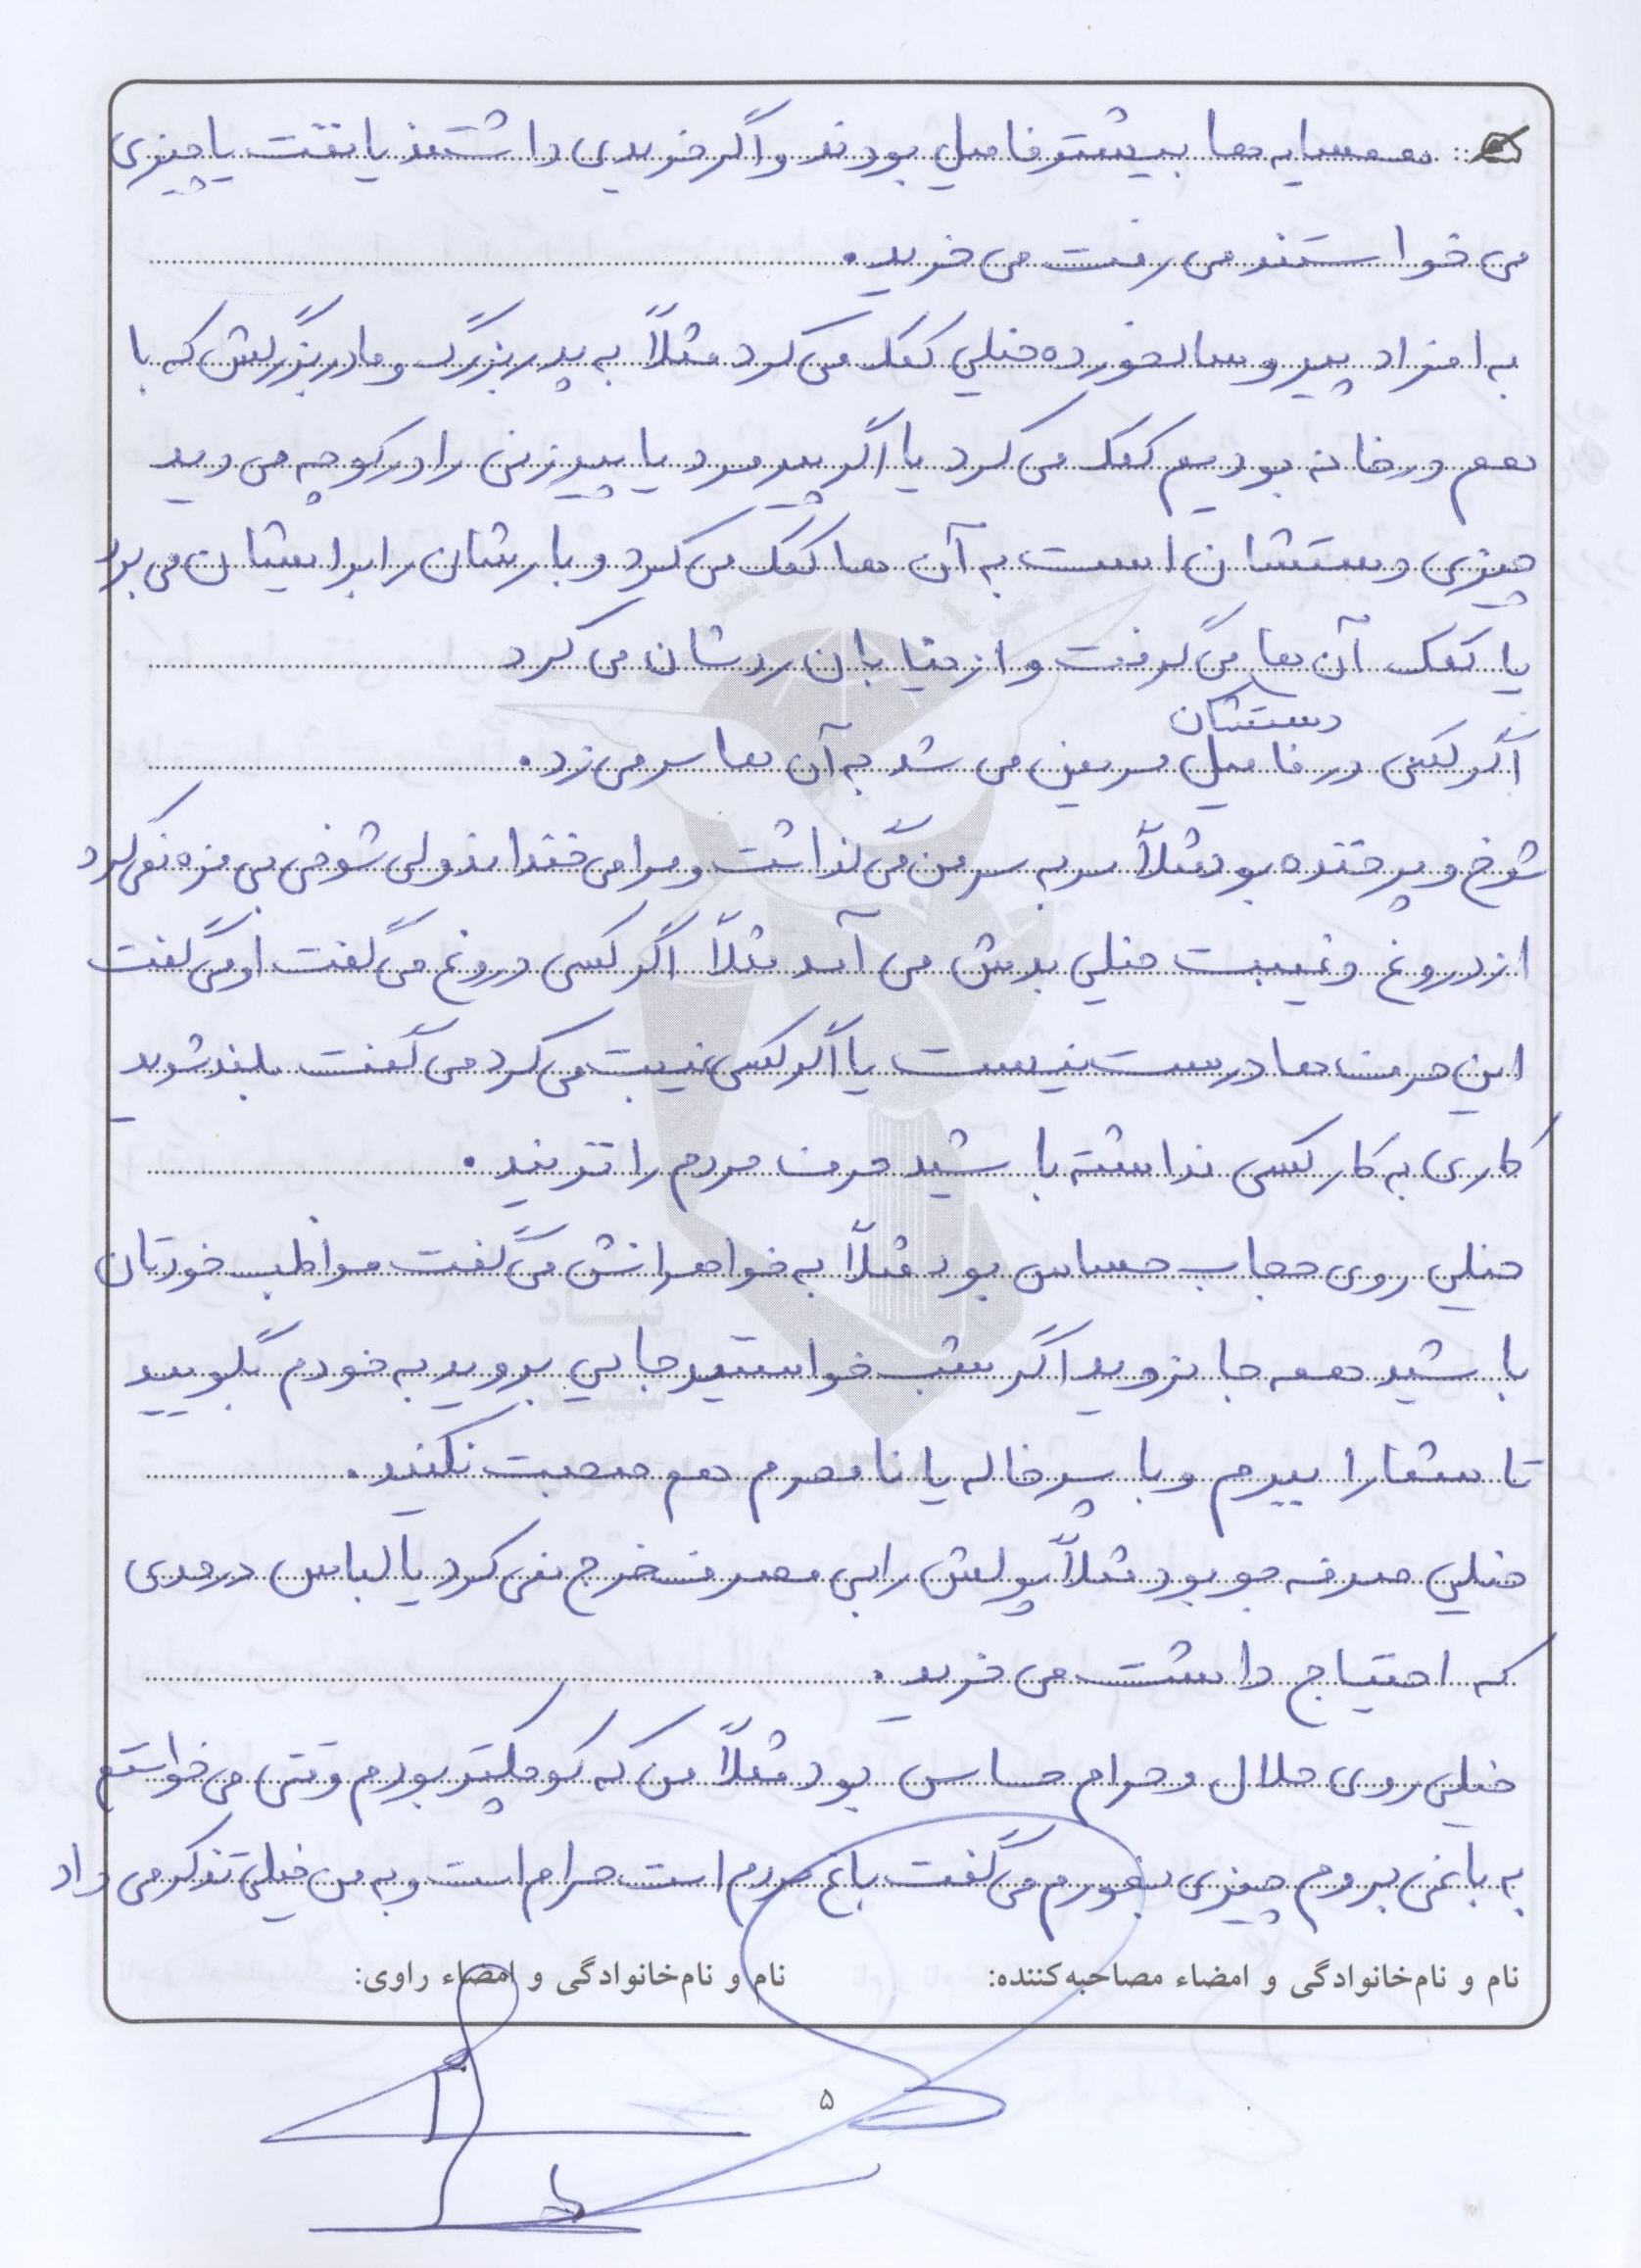 همسایه ها بیشتر فامیل بودند و اگر خریدی داشتند یا نفت یا چیزی
می خواستند می رفت می خرید.
به افراد پیر و سالخورده خیلی کمک می کرد مثلاً به پدربزرگ و مادربزرگش که با
هم در خانه بودیم کمک می کرد یا اگر پیرمرد یا پیرزنی را در کوچه می دید
چیزی دستشان است به آن ها کمک می کرد و بارشان را برایشان می برد
یا کمک آن ها می گرفت و از خیابان ردشان می کرد
دستشان
اگر کسی در فامیل مریض می شد به آن ها سر می زد.
شوخ و پرخنده بود مثلاً سر به سر من می گذاشت و مرا می خنداند ولی شوخی بی مزه نمی کرد
از دروغ و غیبت خیلی بدش می آمد مثلاً اگر کسی دروغ می گفت او می گفت
این حرف ها درست نیست یا اگر کسی غیبت می کرد می گفت بلند شوید
کاری به کار کسی نداشته باشید حرف مردم را نزنید.
خیلی روی حجاب حساس بود مثلاً به خواهرانش می گفت مواظب خودتان
باشید همه جا نروید اگر شب خواستید جایی بروید به خودم بگویید
تا شما را ببرم و با پسرخاله یا نامحرم هم صحبت نکنید.
خیلی صرفه جو بود مثلاً پولش را بی مصرف خرج نمی کرد یا لباس در حدی
که احتیاج داشت می خرید.
خیلی روی حلال و حرام حساس بود مثلاً من که کوچکتر بودم وقتی می خواستم
به باغی بروم چیزی بخورم می گفت باغ مردم است حرام است و به من خیلی تذکر می داد
نام و نام‌خانوادگی و امضاء مصاحبه‌کننده:
نام و نام‌خانوادگی و امضاء راوی:
۵